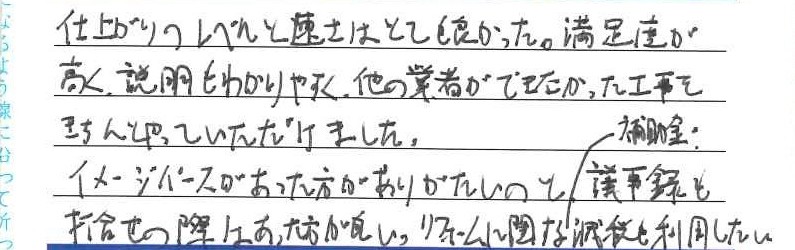 仕上がりのレベルと速さはとても良かった。満足度が
高く、説明もわかりやすく、他の業者ができなかった工事を
きちんとやっていただけました。
補助金・
イメージパースがあった方がありがたいのと、議事録も
打合せの際はあった方が良い。リフォームに関する減税も利用したい